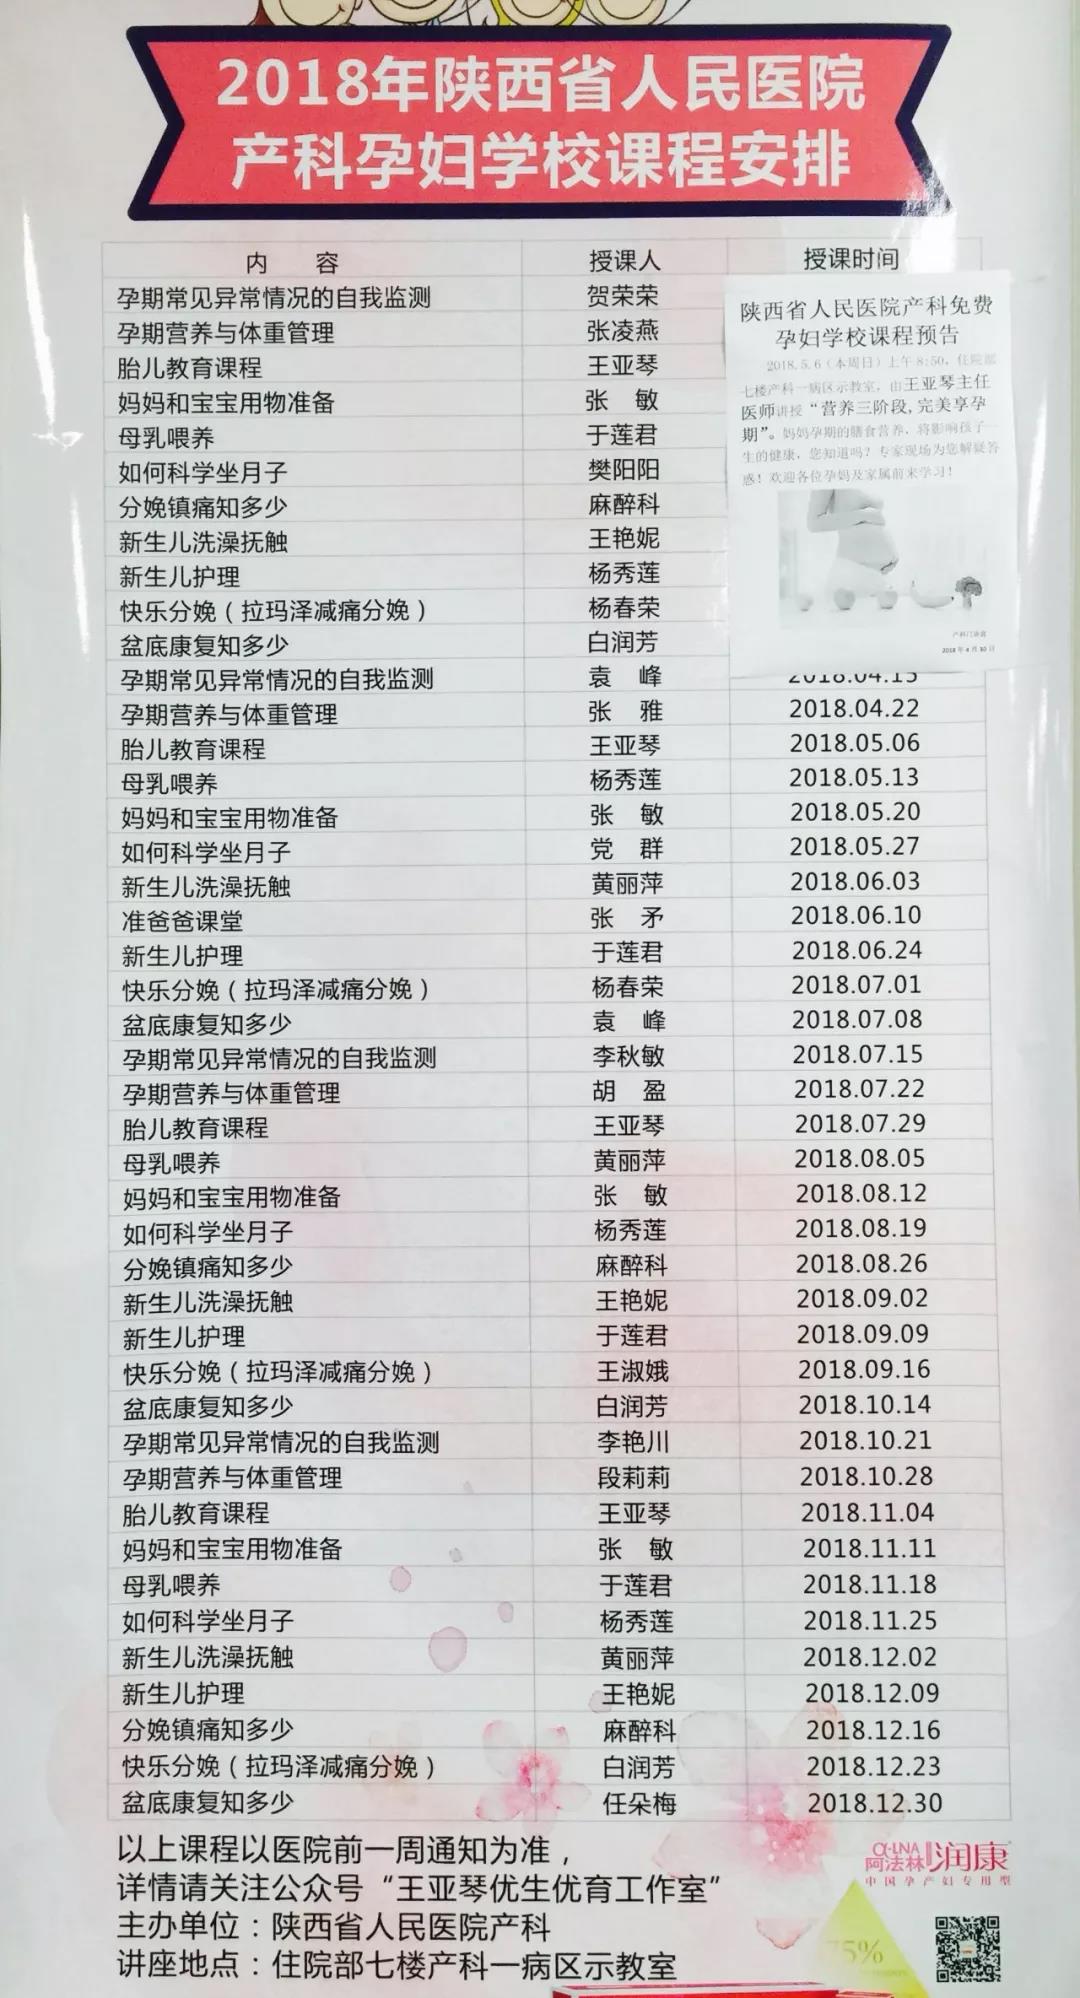 2018年陕西省人民医院
产科孕妇学校课程安排
内 容 授课人 授课时间
孕期常见异常情况的自我监测 贺荣荣
孕期营养与体重管理 张凌燕
胎儿教育课程 王亚琴
妈妈和宝宝用物准备 张 敏
母乳喂养 于莲君
如何科学坐月子 樊阳阳
分娩镇痛知多少 麻醉科
新生儿洗澡抚触 王艳妮
新生儿护理 杨秀莲
快乐分娩（拉玛泽减痛分娩） 杨春荣
盆底康复知多少 白润芳
陕西省人民医院产科免费
孕妇学校课程预告
2018.5.6（本周日）上午8:50，住院部
七楼产科一病区示教室，由王亚琴主任
医师讲授“营养三阶段,完美享孕
期”。妈妈孕期的膳食营养，将影响孩子一
生的健康，您知道吗？专家现场为您解疑答
惑！欢迎各位孕妈及家属前来学习！
产科门诊宣
2018年4月30日
孕期常见异常情况的自我监测 袁 峰 2018.04.15
孕期营养与体重管理 张 雅 2018.04.22
胎儿教育课程 王亚琴 2018.05.06
母乳喂养 杨秀莲 2018.05.13
妈妈和宝宝用物准备 张 敏 2018.05.20
如何科学坐月子 党 群 2018.05.27
新生儿洗澡抚触 黄丽萍 2018.06.03
准爸爸课堂 张 矛 2018.06.10
新生儿护理 于莲君 2018.06.24
快乐分娩（拉玛泽减痛分娩） 杨春荣 2018.07.01
盆底康复知多少 袁 峰 2018.07.08
孕期常见异常情况的自我监测 李秋敏 2018.07.15
孕期营养与体重管理 胡 盈 2018.07.22
胎儿教育课程 王亚琴 2018.07.29
母乳喂养 黄丽萍 2018.08.05
妈妈和宝宝用物准备 张 敏 2018.08.12
如何科学坐月子 杨秀莲 2018.08.19
分娩镇痛知多少 麻醉科 2018.08.26
新生儿洗澡抚触 王艳妮 2018.09.02
新生儿护理 于莲君 2018.09.09
快乐分娩（拉玛泽减痛分娩） 王淑娥 2018.09.16
盆底康复知多少 白润芳 2018.10.14
孕期常见异常情况的自我监测 李艳川 2018.10.21
孕期营养与体重管理 段莉莉 2018.10.28
胎儿教育课程 王亚琴 2018.11.04
妈妈和宝宝用物准备 张 敏 2018.11.11
母乳喂养 于莲君 2018.11.18
如何科学坐月子 杨秀莲 2018.11.25
新生儿洗澡抚触 黄丽萍 2018.12.02
新生儿护理 王艳妮 2018.12.09
分娩镇痛知多少 麻醉科 2018.12.16
快乐分娩（拉玛泽减痛分娩） 白润芳 2018.12.23
盆底康复知多少 任朵梅 2018.12.30
以上课程以医院前一周通知为准，
详情请关注公众号“王亚琴优生优育工作室”
主办单位：陕西省人民医院产科
讲座地点：住院部七楼产科一病区示教室
α-LNA
阿法林润康
中国孕产妇专用型
75%